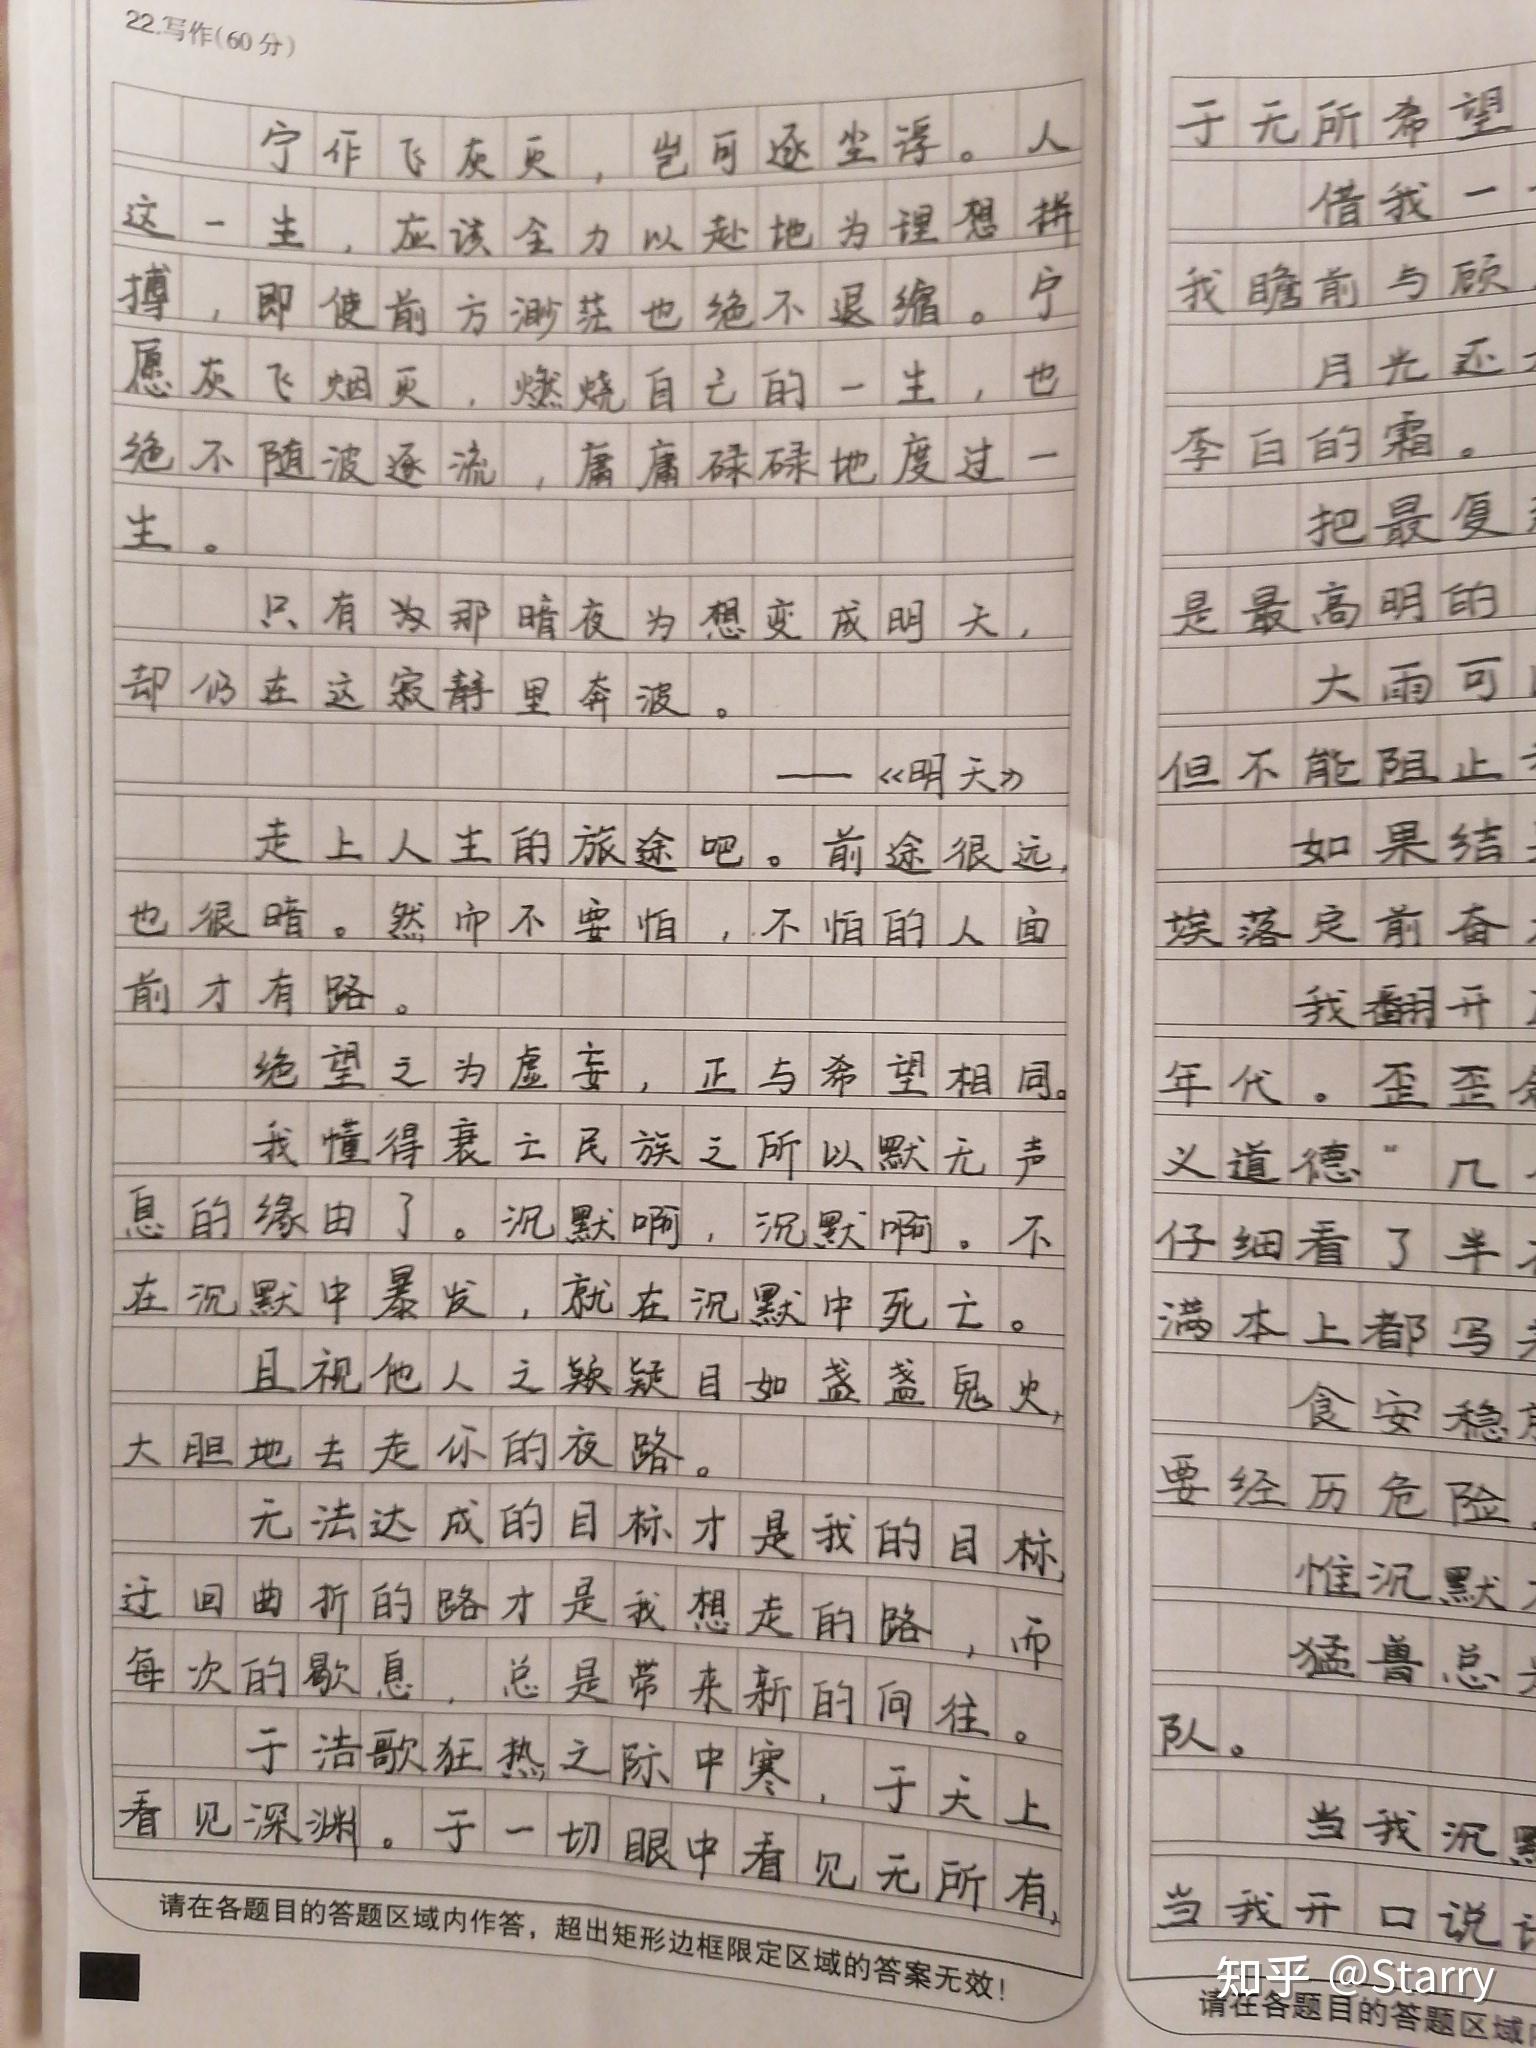 22.写作(60分)
宁作飞灰灭，岂可逐尘浮。人
这一生，应该全力以赴地为理想拼
搏，即使前方渺茫也绝不退缩。宁
愿灰飞烟灭，燃烧自己的一生，也
绝不随波逐流，庸庸碌碌地度过一
生。
只有为那暗夜为想变成明天，
却仍在这寂静里奔波。
——《明天》
走上人生的旅途吧。前途很远，
也很暗。然而不要怕，不怕的人面
前才有路。
绝望之为虚妄，正与希望相同。
我懂得衰亡民族之所以默无声
息的缘由了。沉默啊，沉默啊。不
在沉默中暴发，就在沉默中死亡。
且视他人之疑目如盏盏鬼火，
大胆地去走你的夜路。
无法达成的目标才是我的目标，
迂回曲折的路才是我想走的路，而
每次的歇息，总是带来新的向往。
于浩歌狂热之际中寒，于天上
看见深渊。于一切眼中看见无所有，
请在各题目的答题区域内作答，超出矩形边框限定区域的答案无效！
于无所希望
借我一
我瞻前与顾
月光还
李白的霜。
把最复
是最高明的
大雨可
但不能阻止
如果结
埃落定前奋
我翻开
年代。歪歪
义道德"几
仔细看了半
满本上都写
食安稳
要经历危险
惟沉默
猛兽总
队。
当我沉默
当我开口说
知乎 @Starry
请在各题目的答题区域